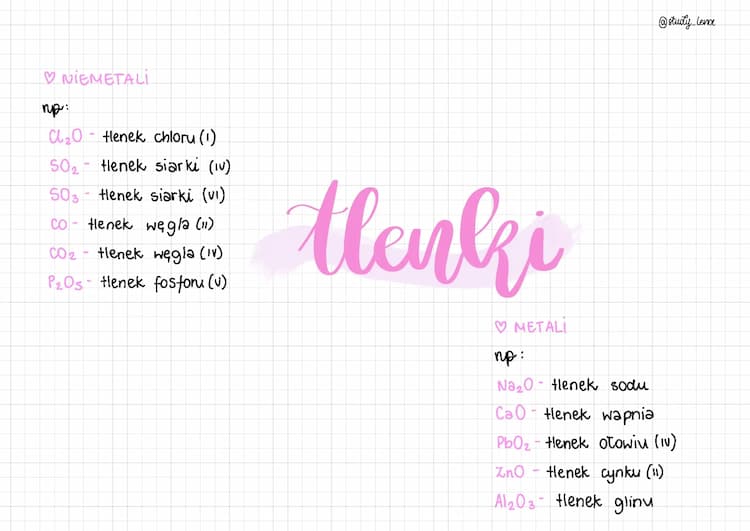 @study_lence
♡ NIEMETALI
np:
Cl₂O - tlenek chloru (I)
SO₂ - tlenek siarki (IV)
SO₃ - tlenek siarki (VI)
CO - tlenek węgla (II)
CO₂ - tlenek węgla (IV)
P₂O₅ - tlenek fosforu (V)
tlenki
♡ METALI
np:
Na₂O - tlenek sodu
CaO - tlenek wapnia
PbO₂ - tlenek ołowiu (IV)
ZnO - tlenek cynku (II)
Al₂O₃ - tlenek glinu